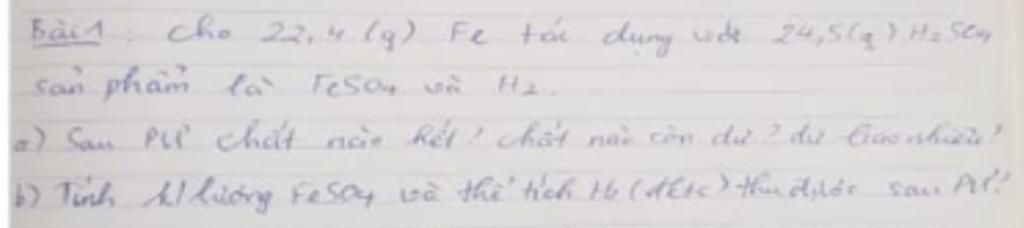 Bài 1: Cho 22,4 (g) Fe tác dụng với 24,5 (g) H2SO4
sản phẩm là FeSO4 và H2.
a) Sau PƯ chất nào hết? chất nào còn dư? dư bao nhiêu?
b) Tính k/lượng FeSO4 và thể tích H2 (đktc) thu được sau PƯ?